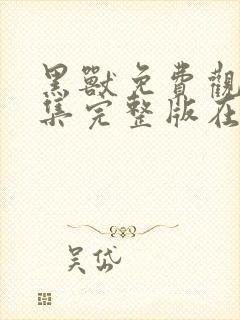 黑獸免費觀
集完整版在
吴岱